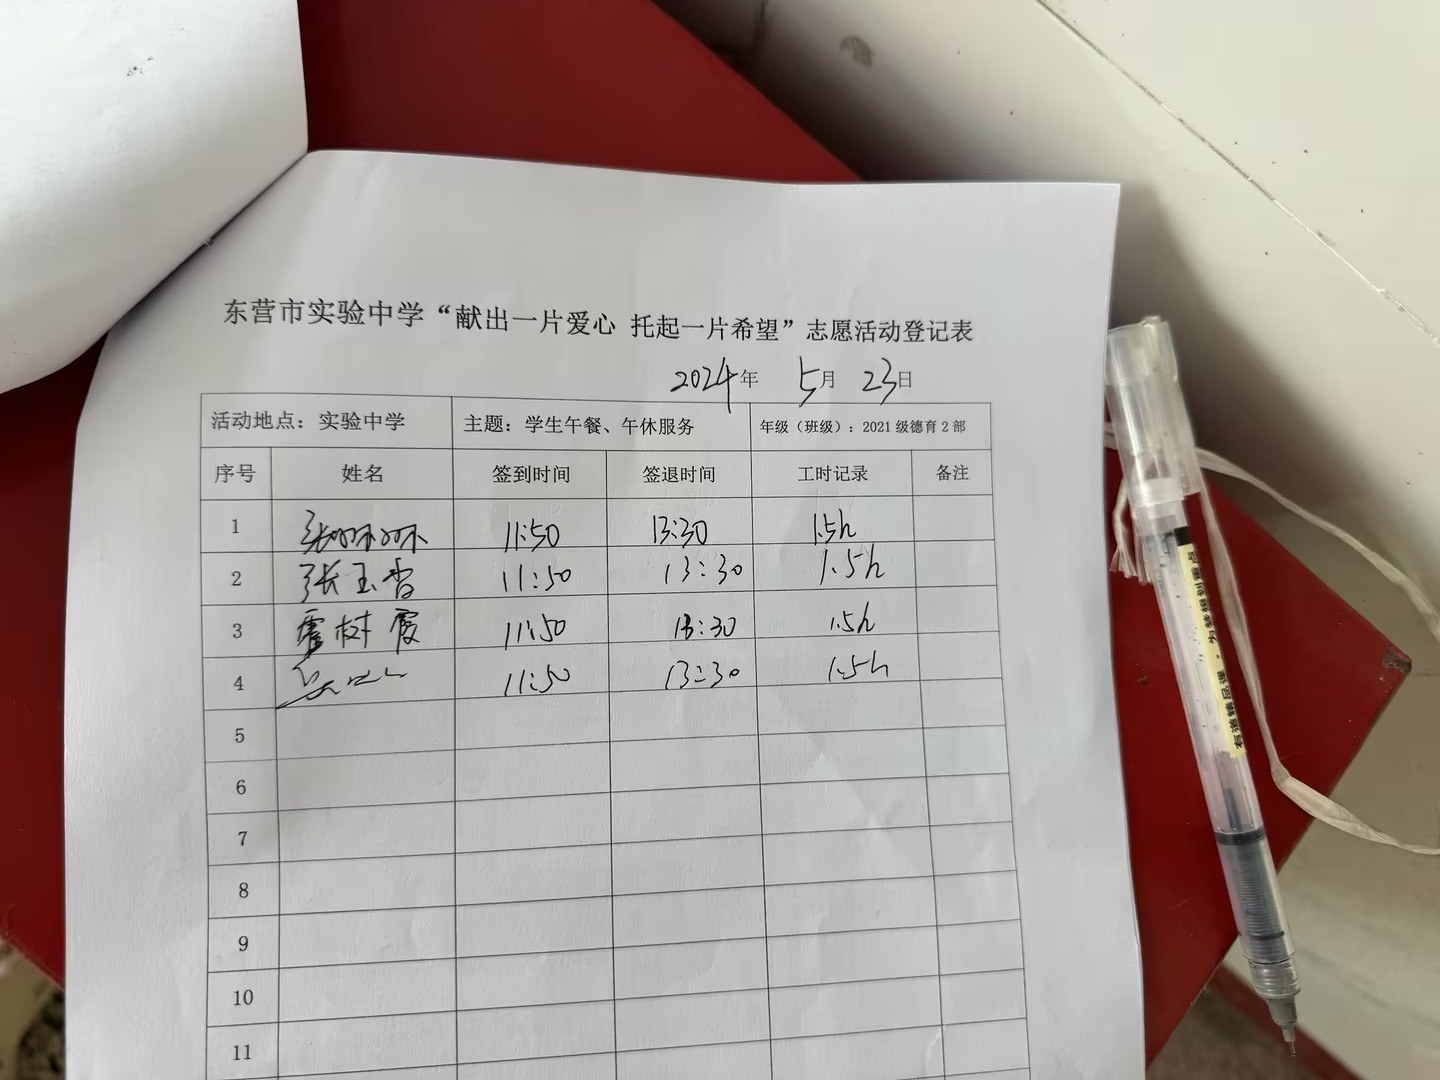 东营市实验中学“献出一片爱心 托起一片希望”志愿活动登记表
2024年 5月 23日
活动地点：实验中学 主题：学生午餐、午休服务 年级（班级）：2021级德育2部
序号 姓名 签到时间 签退时间 工时记录 备注
1 张 11:50 13:30 1.5h
2 张玉香 11:50 13:30 1.5h
3 霍树霞 11:50 13:30 1.5h
4 11:50 13:30 1.5h
5
6
7
8
9
10
11